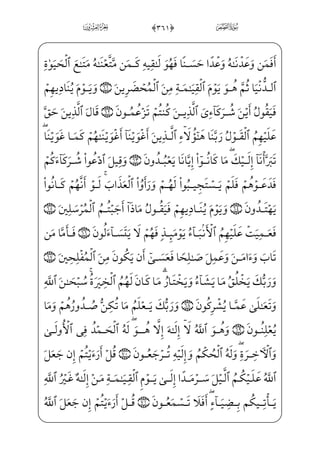 الجزء العشرون ﴿٣٦١﴾ سورة القصص
أَفَمَن وَعَدْنَٰهُ وَعْدًا حَسَنًا فَهُوَ لَٰقِيهِ كَمَن مَّتَّعْنَٰهُ مَتَٰعَ ٱلْحَيَوٰةِ
ٱلدُّنْيَا ثُمَّ هُوَ يَوْمَ ٱلْقِيَٰمَةِ مِنَ ٱلْمُحْضَرِينَ ﴿٦١﴾ وَيَوْمَ يُنَادِيهِمْ
فَيَقُولُ أَيْنَ شُرَكَآءِىَ ٱلَّذِينَ كُنتُمْ تَزْعُمُونَ ﴿٦٢﴾ قَالَ ٱلَّذِينَ حَقَّ
عَلَيْهِمُ ٱلْقَوْلُ رَبَّنَا هَٰٓؤُلَآءِ ٱلَّذِينَ أَغْوَيْنَآ أَغْوَيْنَٰهُمْ كَمَا غَوَيْنَا ۖ
تَبَرَّأْنَآ إِلَيْكَ ۖ مَا كَانُوٓا۟ إِيَّانَا يَعْبُدُونَ ﴿٦٣﴾ وَقِيلَ ٱدْعُوا۟ شُرَكَآءَكُمْ
فَدَعَوْهُمْ فَلَمْ يَسْتَجِيبُوا۟ لَهُمْ وَرَأَوُا۟ ٱلْعَذَابَ ۚ لَوْ أَنَّهُمْ كَانُوا۟
يَهْتَدُونَ ﴿٦٤﴾ وَيَوْمَ يُنَادِيهِمْ فَيَقُولُ مَاذَآ أَجَبْتُمُ ٱلْمُرْسَلِينَ ﴿٦٥﴾
فَعَمِيَتْ عَلَيْهِمُ ٱلْأَنۢبَآءُ يَوْمَئِذٍ فَهُمْ لَا يَتَسَآءَلُونَ ﴿٦٦﴾ فَأَمَّا مَن
تَابَ وَءَامَنَ وَعَمِلَ صَٰلِحًا فَعَسَىٰٓ أَن يَكُونَ مِنَ ٱلْمُفْلِحِينَ ﴿٦٧﴾
وَرَبُّكَ يَخْلُقُ مَا يَشَآءُ وَيَخْتَارُ ۗ مَا كَانَ لَهُمُ ٱلْخِيَرَةُ ۚ سُبْحَٰنَ ٱللَّهِ
وَتَعَٰلَىٰ عَمَّا يُشْرِكُونَ ﴿٦٨﴾ وَرَبُّكَ يَعْلَمُ مَا تُكِنُّ صُدُورُهُمْ وَمَا
يُعْلِنُونَ ﴿٦٩﴾ وَهُوَ ٱللَّهُ لَآ إِلَٰهَ إِلَّا هُوَ ۖ لَهُ ٱلْحَمْدُ فِى ٱلْأُولَىٰ
وَٱلْءَاخِرَةِ ۖ وَلَهُ ٱلْحُكْمُ وَإِلَيْهِ تُرْجَعُونَ ﴿٧٠﴾ قُلْ أَرَءَيْتُمْ إِن جَعَلَ
ٱللَّهُ عَلَيْكُمُ ٱلَّيْلَ سَرْمَدًا إِلَىٰ يَوْمِ ٱلْقِيَٰمَةِ مَنْ إِلَٰهٌ غَيْرُ ٱللَّهِ
يَأْتِيكُم بِضِيَآءٍ ۖ أَفَلَا تَسْمَعُونَ ﴿٧١﴾ قُلْ أَرَءَيْتُمْ إِن جَعَلَ ٱللَّهُ